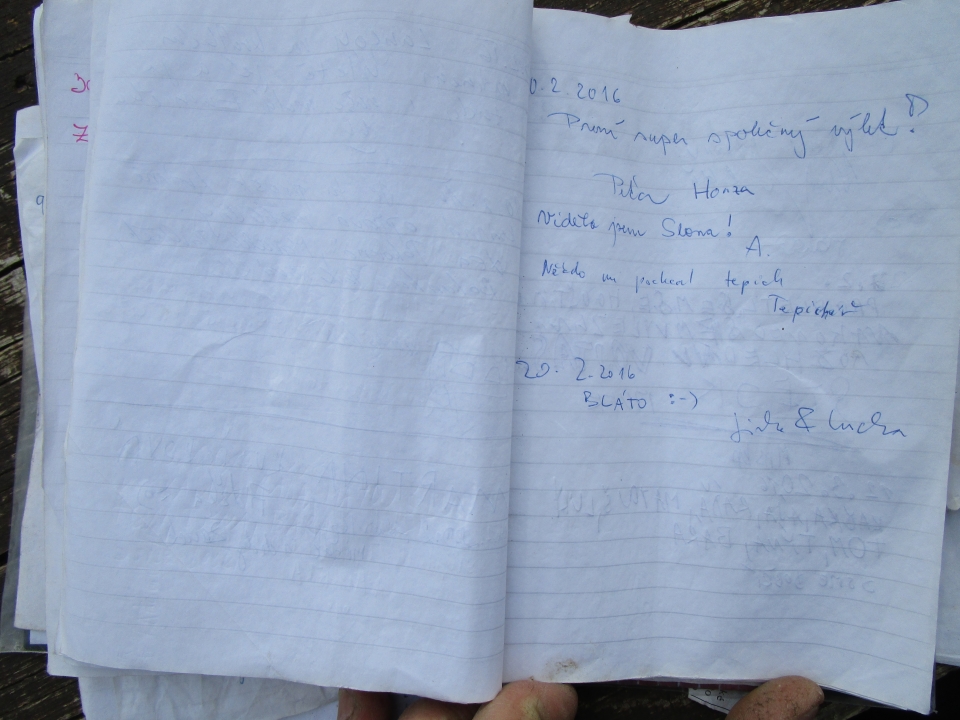 0.2.2016
První super společný výlet!
Píťa Honza
Viděla jsem Slona!
A.
Někdo mi pochcal tepich
20. 2. 2016
BLÁTO :-)
& Lucka